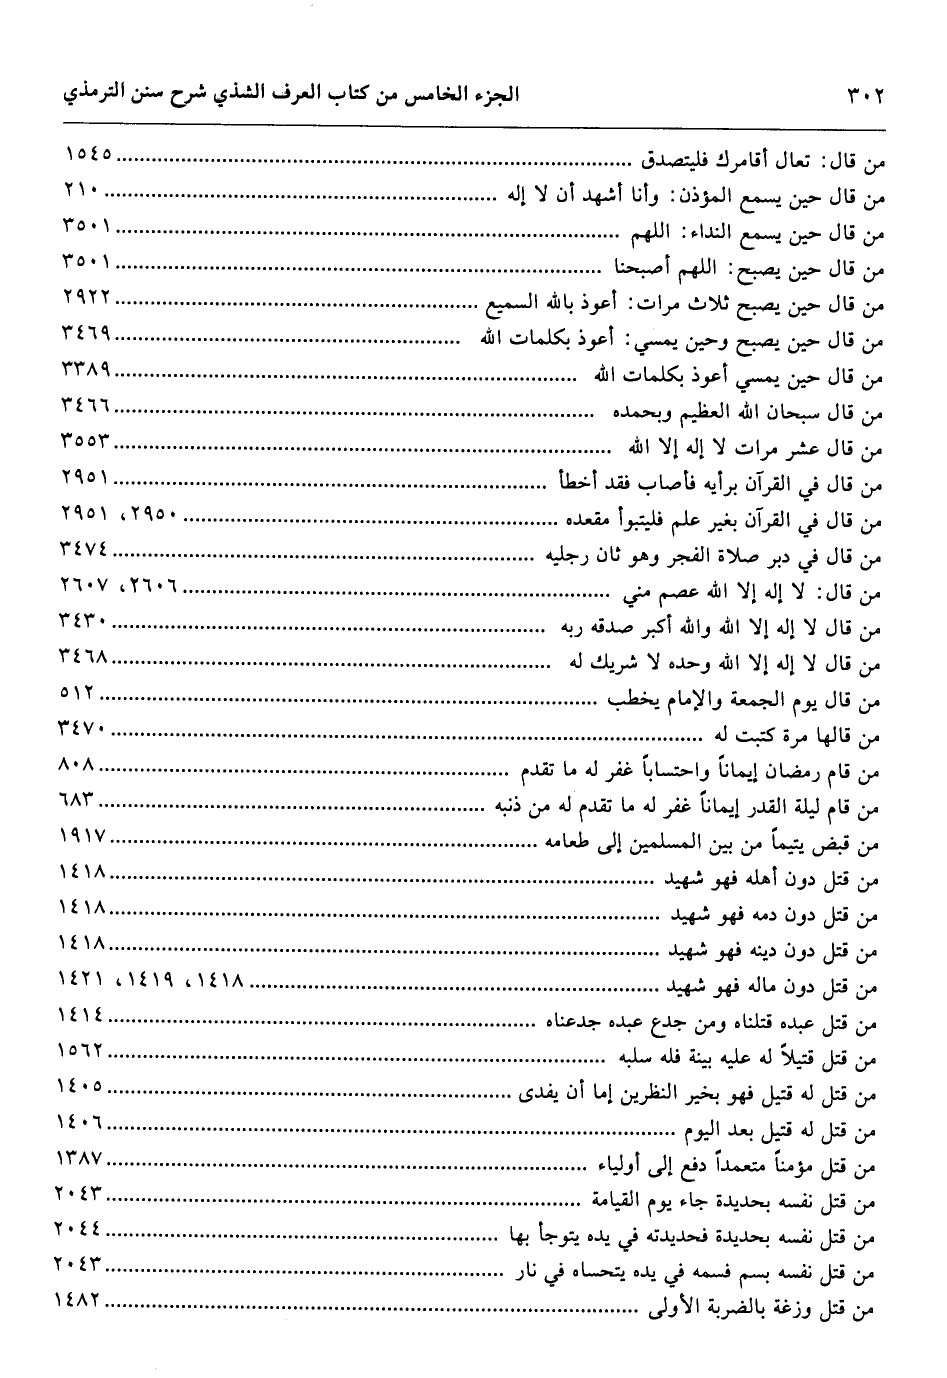 ٣٠٢ الجزء الخامس من كتاب العرف الشذي شرح سنن الترمذي
من قال: تعال أقامرك فليتصدق ........ ١٥٤٥
من قال حين يسمع المؤذن: وأنا أشهد أن لا إله ........ ٢١٠
من قال حين يسمع النداء: اللهم ........ ٣٥٠١
من قال حين يصبح: اللهم أصبحنا ........ ٣٥٠١
من قال حين يصبح ثلاث مرات: أعوذ بالله السميع ........ ٢٩٢٢
من قال حين يصبح وحين يمسي: أعوذ بكلمات الله ........ ٣٤٦٩
من قال حين يمسي أعوذ بكلمات الله ........ ٣٣٨٩
من قال سبحان الله العظيم وبحمده ........ ٣٤٦٦
من قال عشر مرات لا إله إلا الله ........ ٣٥٥٣
من قال في القرآن برأيه فأصاب فقد أخطأ ........ ٢٩٥١
من قال في القرآن بغير علم فليتبوأ مقعده ........ ٢٩٥٠، ٢٩٥١
من قال في دبر صلاة الفجر وهو ثان رجليه ........ ٣٤٧٤
من قال: لا إله إلا الله عصم مني ........ ٢٦٠٦، ٢٦٠٧
من قال لا إله إلا الله والله أكبر صدقه ربه ........ ٣٤٣٠
من قال لا إله إلا الله وحده لا شريك له ........ ٣٤٦٨
من قال يوم الجمعة والإمام يخطب ........ ٥١٢
من قالها مرة كتبت له ........ ٣٤٧٠
من قام رمضان إيماناً واحتساباً غفر له ما تقدم ........ ٨٠٨
من قام ليلة القدر إيماناً غفر له ما تقدم له من ذنبه ........ ٦٨٣
من قبض يتيماً من بين المسلمين إلى طعامه ........ ١٩١٧
من قتل دون أهله فهو شهيد ........ ١٤١٨
من قتل دون دمه فهو شهيد ........ ١٤١٨
من قتل دون دينه فهو شهيد ........ ١٤١٨
من قتل دون ماله فهو شهيد ........ ١٤١٨، ١٤١٩، ١٤٢١
من قتل عبده قتلناه ومن جدع عبده جدعناه ........ ١٤١٤
من قتل قتيلاً له عليه بينة فله سلبه ........ ١٥٦٢
من قتل له قتيل فهو بخير النظرين إما أن يفدى ........ ١٤٠٥
من قتل له قتيل بعد اليوم ........ ١٤٠٦
من قتل مؤمناً متعمداً دفع إلى أولياء ........ ١٣٨٧
من قتل نفسه بحديدة جاء يوم القيامة ........ ٢٠٤٣
من قتل نفسه بحديدة فحديدته في يده يتوجأ بها ........ ٢٠٤٤
من قتل نفسه بسم فسمه في يده يتحساه في نار ........ ٢٠٤٣
من قتل وزغة بالضربة الأولى ........ ١٤٨٢